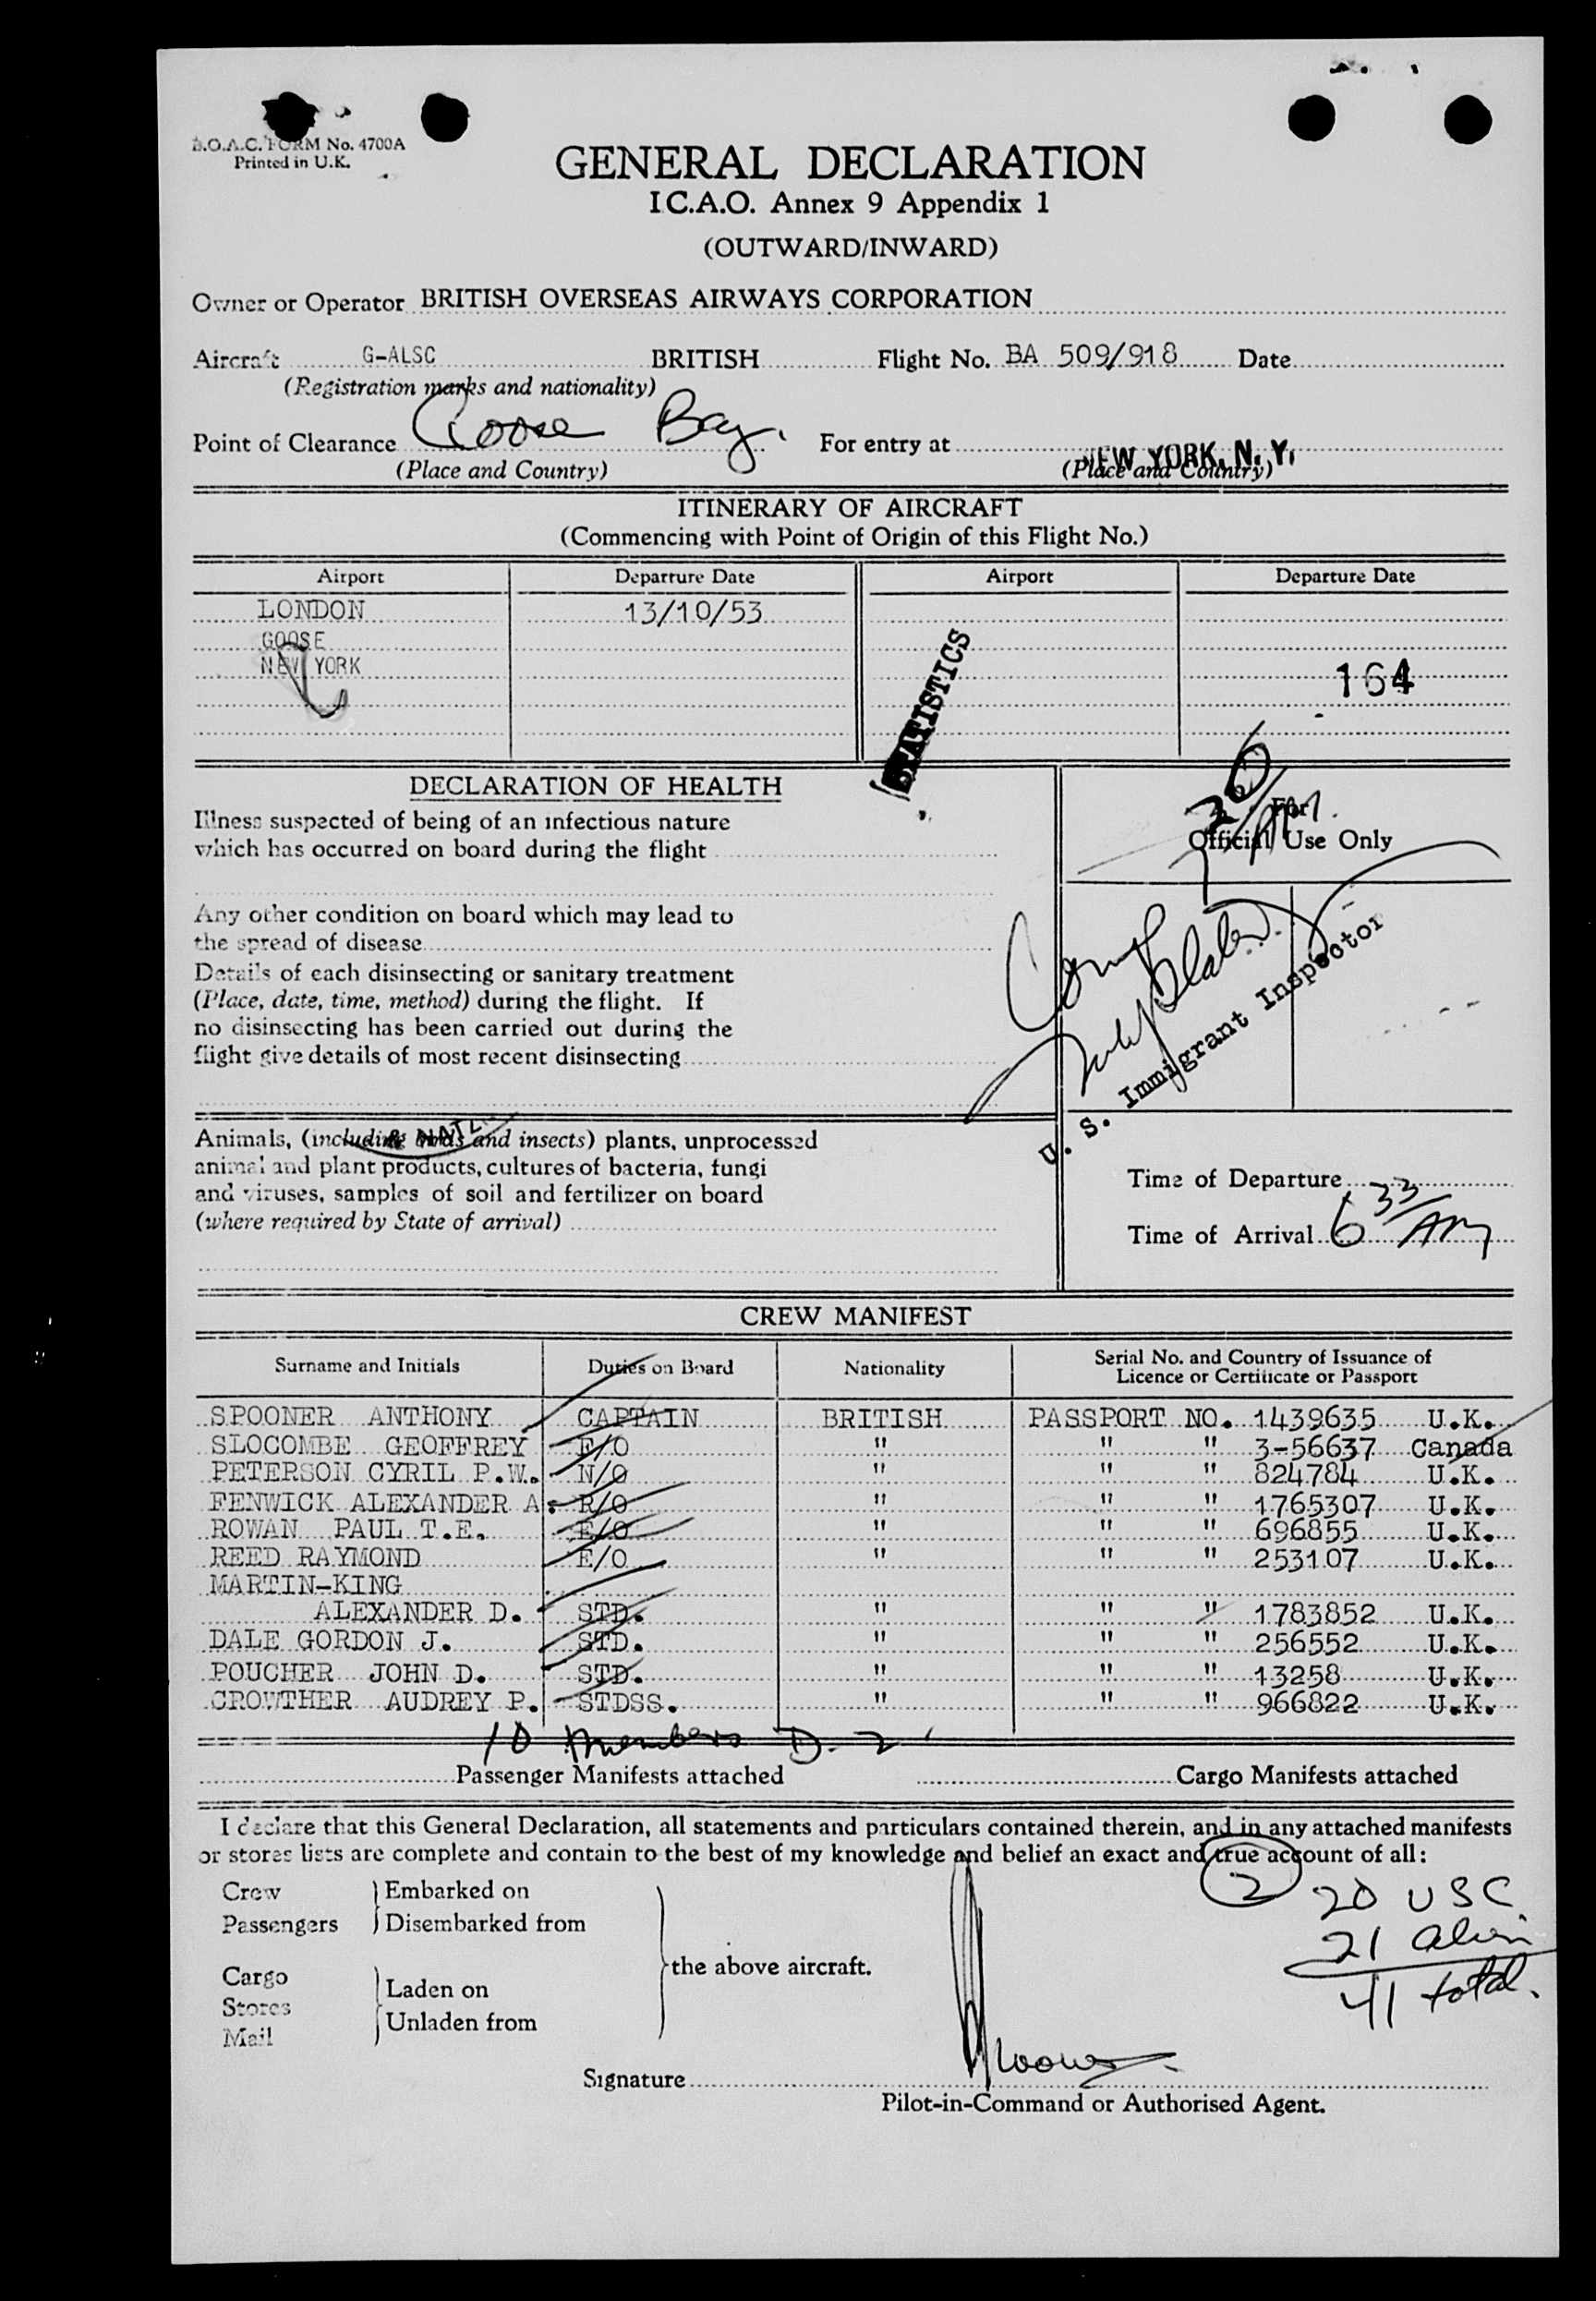 B.O.A.C. FORM No. 4700A
Printed in U.K.
GENERAL DECLARATION
I C.A.O. Annex 9 Appendix 1
(OUTWARD/INWARD)
Owner or Operator BRITISH OVERSEAS AIRWAYS CORPORATION
Aircraft G-ALSC BRITISH Flight No. BA 509/918 Date
(Registration marks and nationality)
Point of Clearance Goose Bay. For entry at NEW YORK, N. Y.
(Place and Country) (Place and Country)
ITINERARY OF AIRCRAFT
(Commencing with Point of Origin of this Flight No.)
Airport Departure Date Airport Departure Date
LONDON 13/10/53
GOOSE
NEW YORK
164
STATISTICS
DECLARATION OF HEALTH
Illness suspected of being of an infectious nature
which has occurred on board during the flight
For
Official Use Only
Any other condition on board which may lead to
the spread of disease
Details of each disinsecting or sanitary treatment
(Place, date, time, method) during the flight. If
no disinsecting has been carried out during the
flight give details of most recent disinsecting
U. S. Immigrant Inspector
& NATZ
Animals, (including birds and insects) plants, unprocessed
animal and plant products, cultures of bacteria, fungi
and viruses, samples of soil and fertilizer on board
(where required by State of arrival)
Time of Departure
Time of Arrival 6 33/AM
CREW MANIFEST
Surname and Initials Duties on Board Nationality Serial No. and Country of Issuance of
Licence or Certificate or Passport
SPOONER ANTHONY CAPTAIN BRITISH PASSPORT NO. 1439635 U.K.
SLOCOMBE GEOFFREY F/O " " " 3-56637 Canada
PETERSON CYRIL P.W. N/O " " " 824784 U.K.
FENWICK ALEXANDER A. R/O " " " 1765307 U.K.
ROWAN PAUL T.E. E/O " " " 696855 U.K.
REED RAYMOND E/O " " " 253107 U.K.
MARTIN-KING
ALEXANDER D. STD. " " " 1783852 U.K.
DALE GORDON J. STD. " " " 256552 U.K.
POUCHER JOHN D. STD. " " " 13258 U.K.
CROWTHER AUDREY P. STDSS. " " " 966822 U.K.
10 members D-2
Passenger Manifests attached Cargo Manifests attached
I declare that this General Declaration, all statements and particulars contained therein, and in any attached manifests
or stores lists are complete and contain to the best of my knowledge and belief an exact and true account of all:
2
20 USC
21 alien
41 total.
Crew
Passengers
Embarked on
Disembarked from
Cargo
Stores
Mail
Laden on
Unladen from
the above aircraft.
Signature
Pilot-in-Command or Authorised Agent.